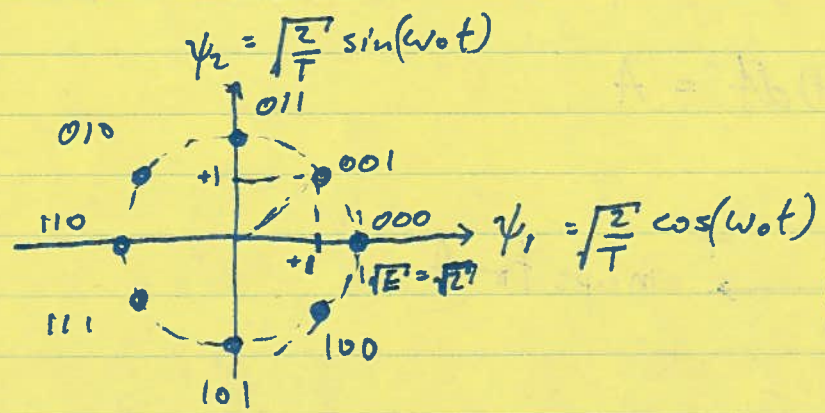 ψ₂ = √(2/T) sin(ω₀t)
011
010
+1
001
110
000
ψ₁ = √(2/T) cos(ω₀t)
+1
√E = √2
111
100
101